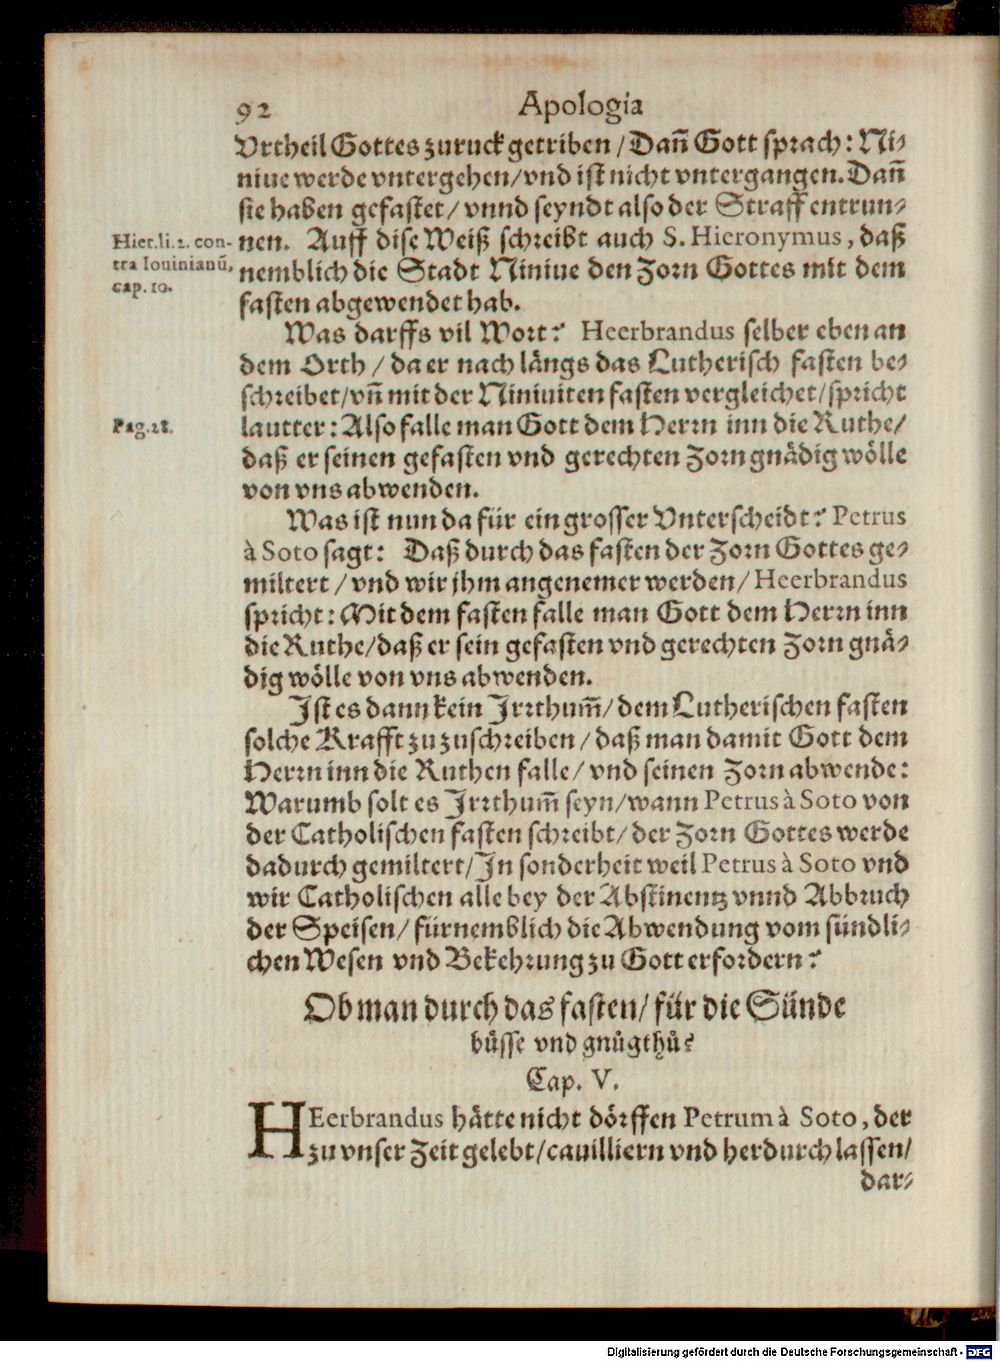 92 Apologia
Vrtheil Gottes zuruck getriben / Dañ Gott sprach: Ni-
niue werde vntergehen/vnd ist nicht vntergangen. Dañ
sie haben gefastet/ vnnd seyndt also der Straff entrun-
Hier. li. 2. con-
tra Iouinianū,
cap. 10.
nen. Auff dise Weiß schreibt auch S. Hieronymus, daß
nemblich die Stadt Niniue den Zorn Gottes mit dem
fasten abgewendet hab.
Was darffs vil Wort? Heerbrandus selber eben an
dem Orth / da er nach längs das Lutherisch fasten be-
schreibet/vñ mit der Niniuiten fasten vergleichet/spricht
Pag. 28.
lautter: Also falle man Gott dem Herrn inn die Ruthe/
daß er seinen gefasten vnd gerechten Zorn gnädig wölle
von vns abwenden.
Was ist nun da für ein grosser Vnterscheidt? Petrus
à Soto sagt: Daß durch das fasten der Zorn Gottes ge-
miltert / vnd wir jhm angenemer werden/ Heerbrandus
spricht: Mit dem fasten falle man Gott dem Herrn inn
die Ruthe/daß er sein gefasten vnd gerechten Zorn gnä-
dig wölle von vns abwenden.
Ist es dann kein Irrthum̃/ dem Lutherischen fasten
solche Krafft zu zuschreiben / daß man damit Gott dem
Herrn inn die Ruthen falle/ vnd seinen Zorn abwende:
Warumb solt es Irrthum̃ seyn/wann Petrus à Soto von
der Catholischen fasten schreibt/ der Zorn Gottes werde
dadurch gemiltert/ In sonderheit weil Petrus à Soto vnd
wir Catholischen alle bey der Abstinentz vnnd Abbruch
der Speisen/ fürnemblich die Abwendung vom sündli-
chen Wesen vnd Bekehrung zu Gott erfordern?
Ob man durch das fasten/ für die Sünde
büsse vnd gnůgthů?
Cap. V.
HEerbrandus hätte nicht dörffen Petrum à Soto, der
zu vnser Zeit gelebt/cauilliern vnd herdurch lassen/
dar-
Digitalisierung gefördert durch die Deutsche Forschungsgemeinschaft - DFG